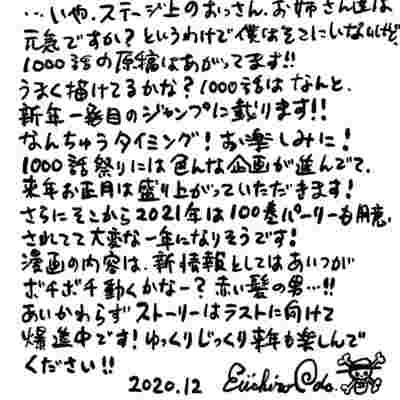 …いや、ステージ上のおっさん、お姉さん達は
元気ですか?というわけで僕はそこにいないけど、
1000話の原稿はあがってます!!
うまく描けてるかな?1000話はなんと、
新年一発目のジャンプに載ります!!
なんちゅうタイミング!お楽しみに!
1000話祭りには色んな企画が進んでて、
来年お正月は盛り上がっていただきます!
さらにそこから2021年は100巻パーリーも用意
されてて大変な一年になりそうです!
漫画の内容は、新情報としてはあいつが
ボチボチ動くかなー?赤い髪の男…!!
あいかわらずストーリーはラストに向けて
爆進中です!ゆっくりじっくり来年も楽しんで
ください!!
2020.12 Eiichiro Oda